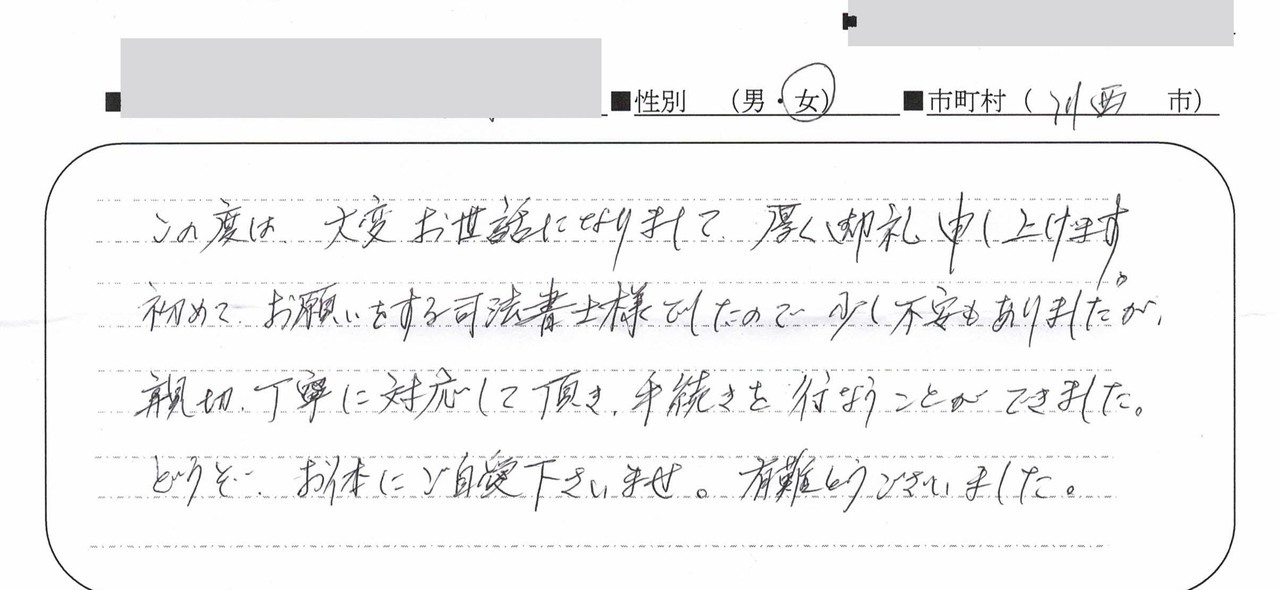 ■ ■性別 (男・女) ■市町村 ( 川西 市)
この度は、大変お世話になりまして、厚く御礼申し上げます。
初めて、お願いをする司法書士様でしたので少し不安もありましたが、
親切、丁寧に対応して頂き、手続きを行なうことができました。
どうぞ、お体にご自愛下さいませ。有難とうございました。